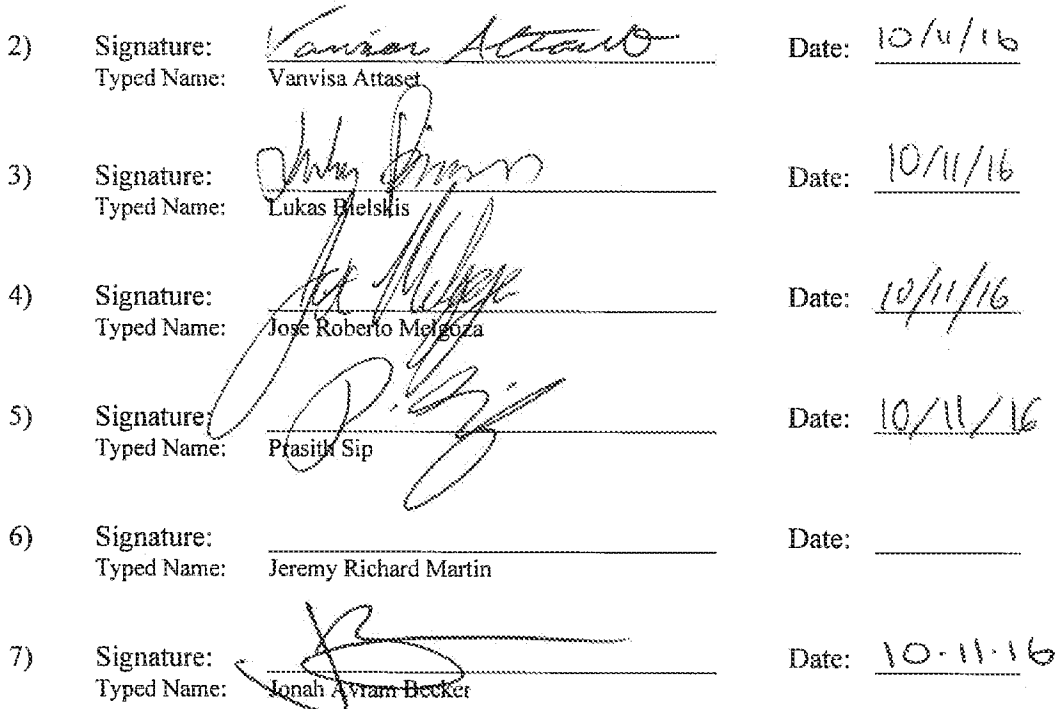 2) Signature: Vanvisa Attaset Date: 10/11/16
Typed Name: Vanvisa Attaset
3) Signature: Date: 10/11/16
Typed Name: Lukas Bielskis
4) Signature: Jose Melgoza Date: 10/11/16
Typed Name: Jose Roberto Melgoza
5) Signature: P. Sip Date: 10/11/16
Typed Name: Prasith Sip
6) Signature: Date:
Typed Name: Jeremy Richard Martin
7) Signature: Date: 10.11.16
Typed Name: Jonah Avram Becker